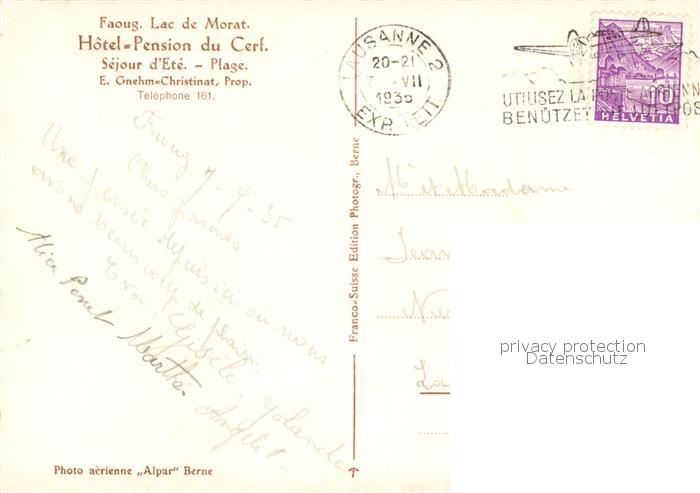 Faoug. Lac de Morat.
Hôtel-Pension du Cerf.
Séjour d'Eté. - Plage.
E. Gnehm-Christinat, Prop.
Téléphone 161.
Faoug 7-7-35
Chers parents
Une pensée depuis ici ou nous
avons beaucoup de plaisir
Gisèle Yolande
Alice Perret Marthe
Angèle
Photo aèrienne „Alpar" Berne
Franco-Suisse Edition Photogr., Berne
LAUSANNE 2
20-21
7. VII
1935
EXP. LETT.
UTILISEZ LA POSTE AERIENNE
BENÜTZET
10
HELVETIA
Mr et Madame
privacy protection
Datenschutz